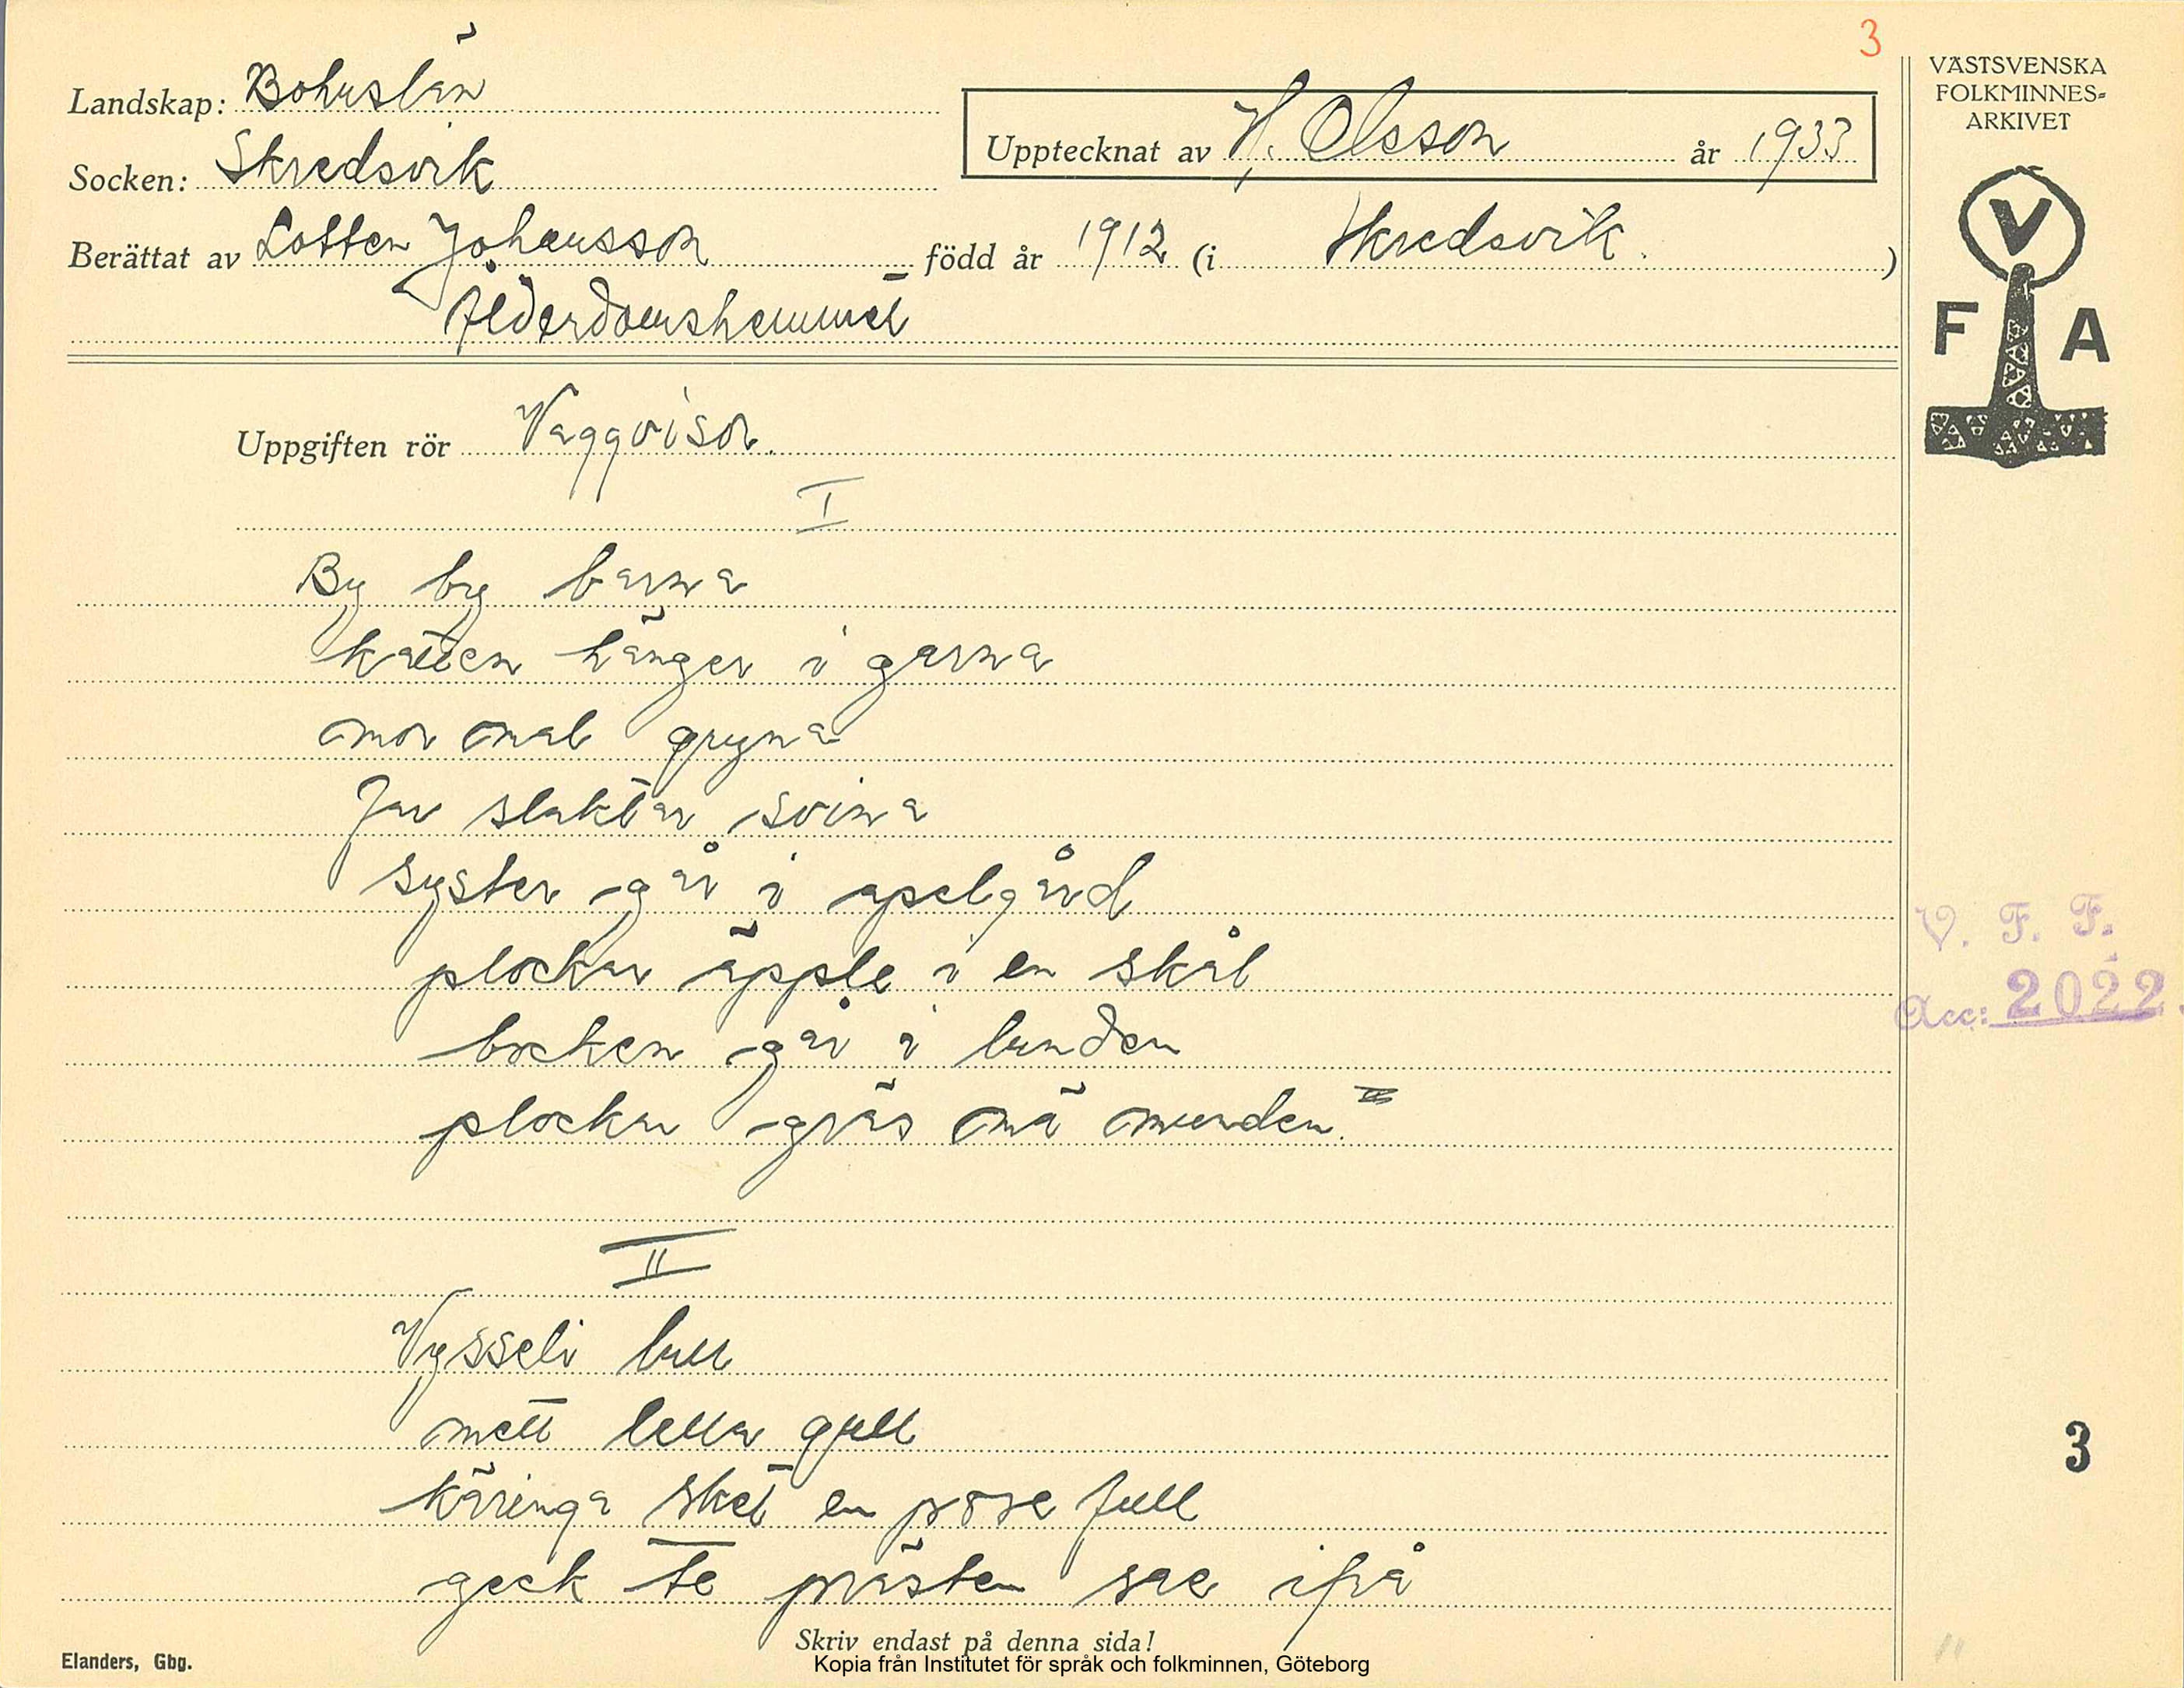 3
Landskap: Bohuslän
Socken: Skredsvik
Upptecknat av H. Olsson år 1933
Berättat av Lotten Johansson född år 1912 (i Skredsvik.)
Ålderdomshemmet
VÄSTSVENSKA
FOLKMINNES=
ARKIVET
V
F A
Uppgiften rör Vaggvisor.
I
By by barna
katten hänger i garna
mor mal gryna
Far slaktar svina
syster går i apelgård
plockar äpple i en skål
bocken går i lunden
plockar gräs mä munden.
V. F. F.
Acc: 2022.
II
Vysseli lull
mett lella gull
käringa sket en pose full
geck te prästen sae ifrå
3
Skriv endast på denna sida!
Elanders, Gbg.
Kopia från Institutet för språk och folkminnen, Göteborg